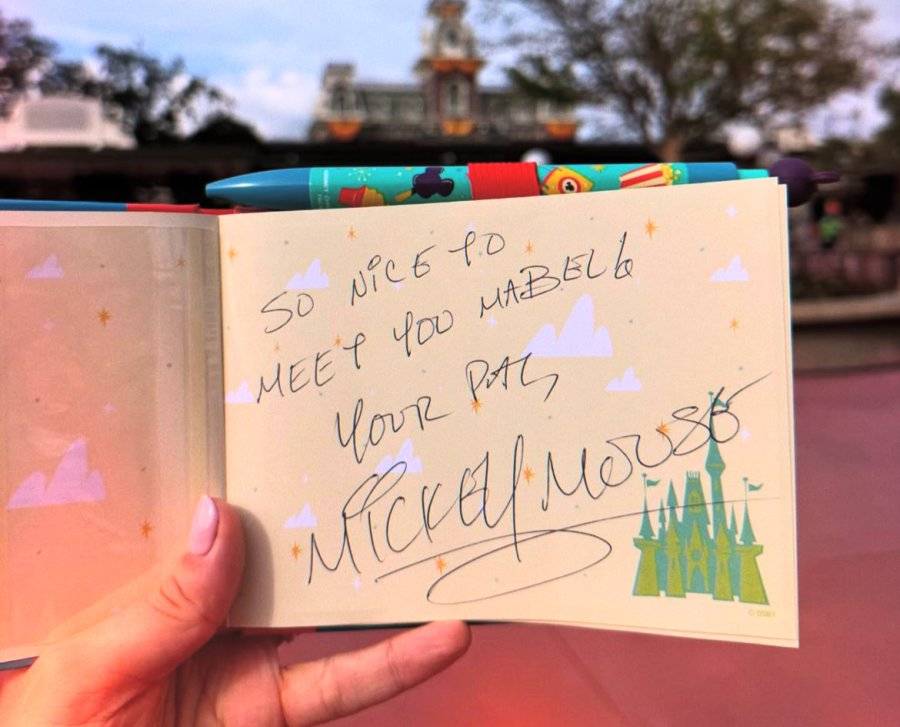 SO NICE TO
MEET YOU MABEL
YOUR PAL,
MICKEY MOUSE